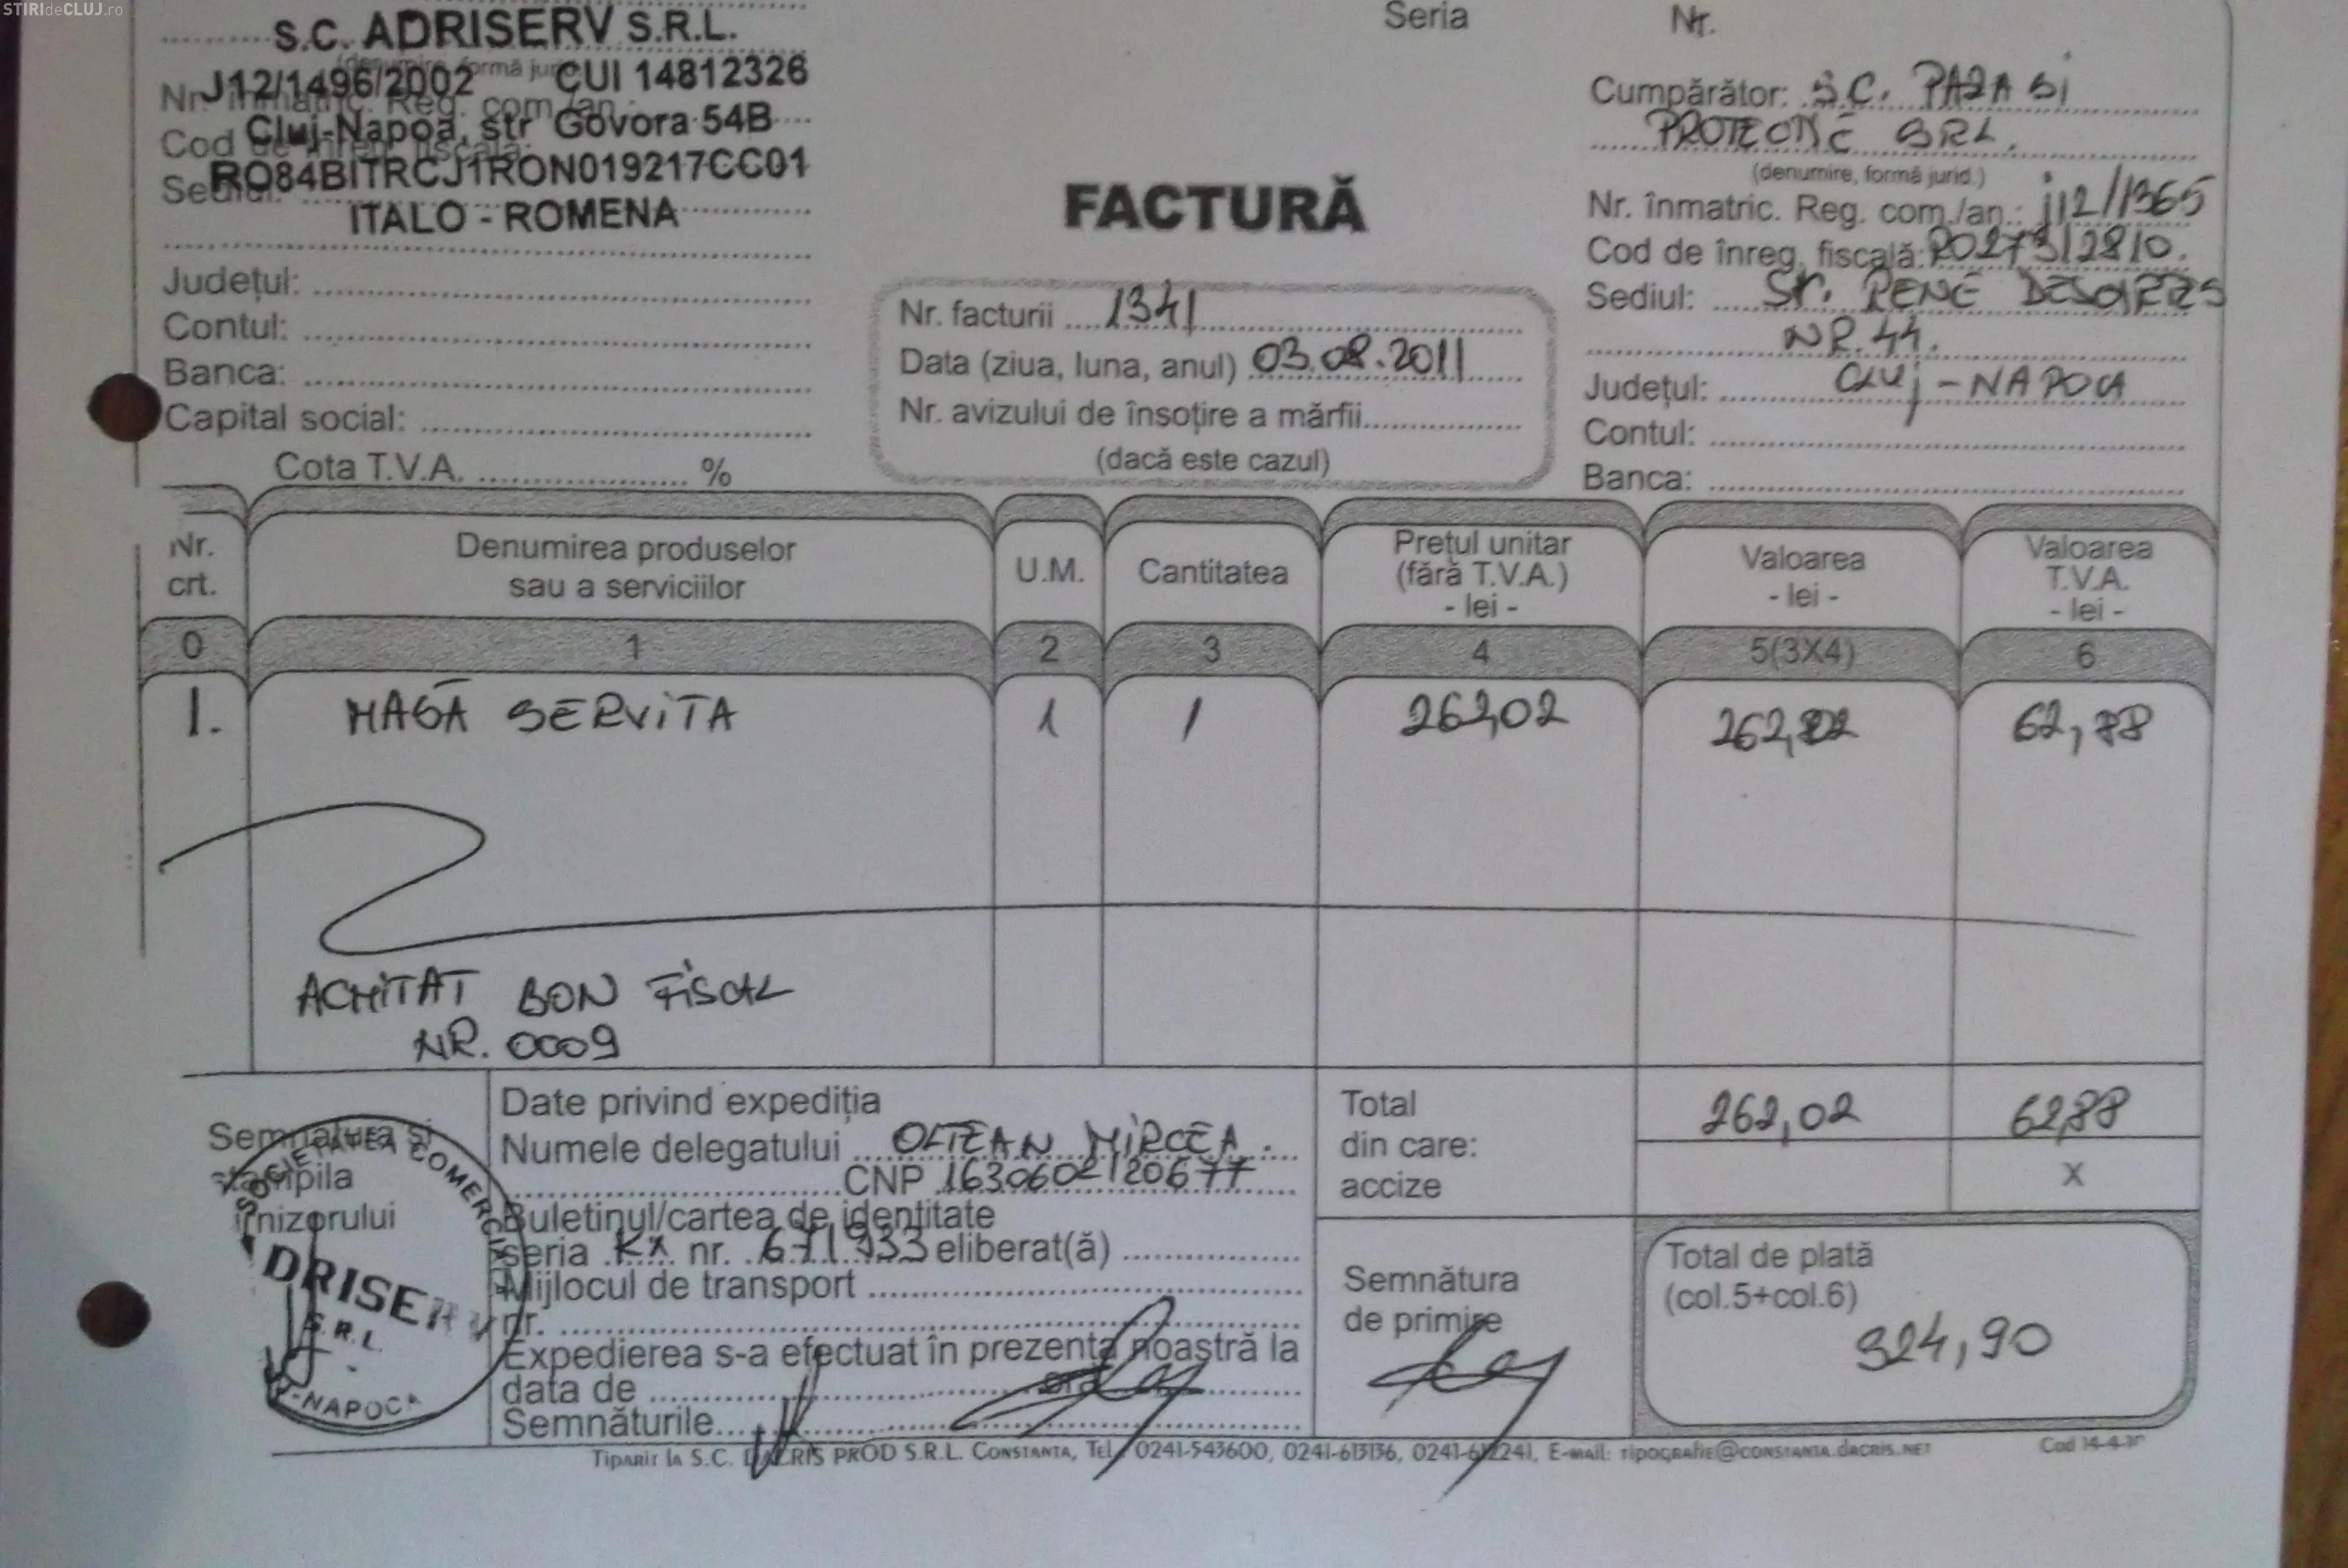 STIRIdeCLUJ.ro
S.C. ADRISERV S.R.L.
J12/1496/2002 CUI 14812326
Nr. înmatric. Reg. com./an
Cluj-Napoa, str Govora 54B
Cod de înreg. fiscală:
RO84BITRCJ1RON019217CC01
Sediul:
ITALO - ROMENA
Județul:
Contul:
Banca:
Capital social:
Cota T.V.A. %
Seria Nr.
FACTURĂ
Nr. facturii 1341
Data (ziua, luna, anul) 03.08.2011
Nr. avizului de însoțire a mărfii
(dacă este cazul)
Cumpărător: S.C. PAZA SI
SRL.
(denumire, formă jurid.)
Nr. înmatric. Reg. com./an.: j12/1365
Cod de înreg. fiscală: RO27312810.
Sediul: Str. RENE
NR. 44.
Județul: CLUj - NAPOCA
Contul:
Banca:
Nr. crt.
Denumirea produselor
sau a serviciilor
U.M.
Cantitatea
Prețul unitar
(fără T.V.A.)
- lei -
Valoarea
- lei -
Valoarea
T.V.A.
- lei -
0 1 2 3 4 5(3X4) 6
1. MASĂ SERVITA 1 1 262,02 262,02 62,88
ACHITAT BON FISCAL
NR. 0009
Semnătura și
ștampila
furnizorului
SOCIETATEA COMERCIALĂ
ADRISERV
S.R.L.
CLUJ-NAPOCA
Date privind expediția
Numele delegatului OLTEAN MIRCEA.
CNP 1630602120677
Buletinul/cartea de identitate
seria KX nr. 671933 eliberat(ă)
Mijlocul de transport
nr.
Expedierea s-a efectuat în prezența noastră la
data de ora
Semnăturile
Total 262,02 62,88
din care:
accize X
Semnătura
de primire
Total de plată
(col.5+col.6)
324,90
Tipărit la S.C. DACRIS PROD S.R.L. Constanta, Tel. 0241-543600, 0241-613136, 0241-612241, E-mail: tipografie@constanta.dacris.net